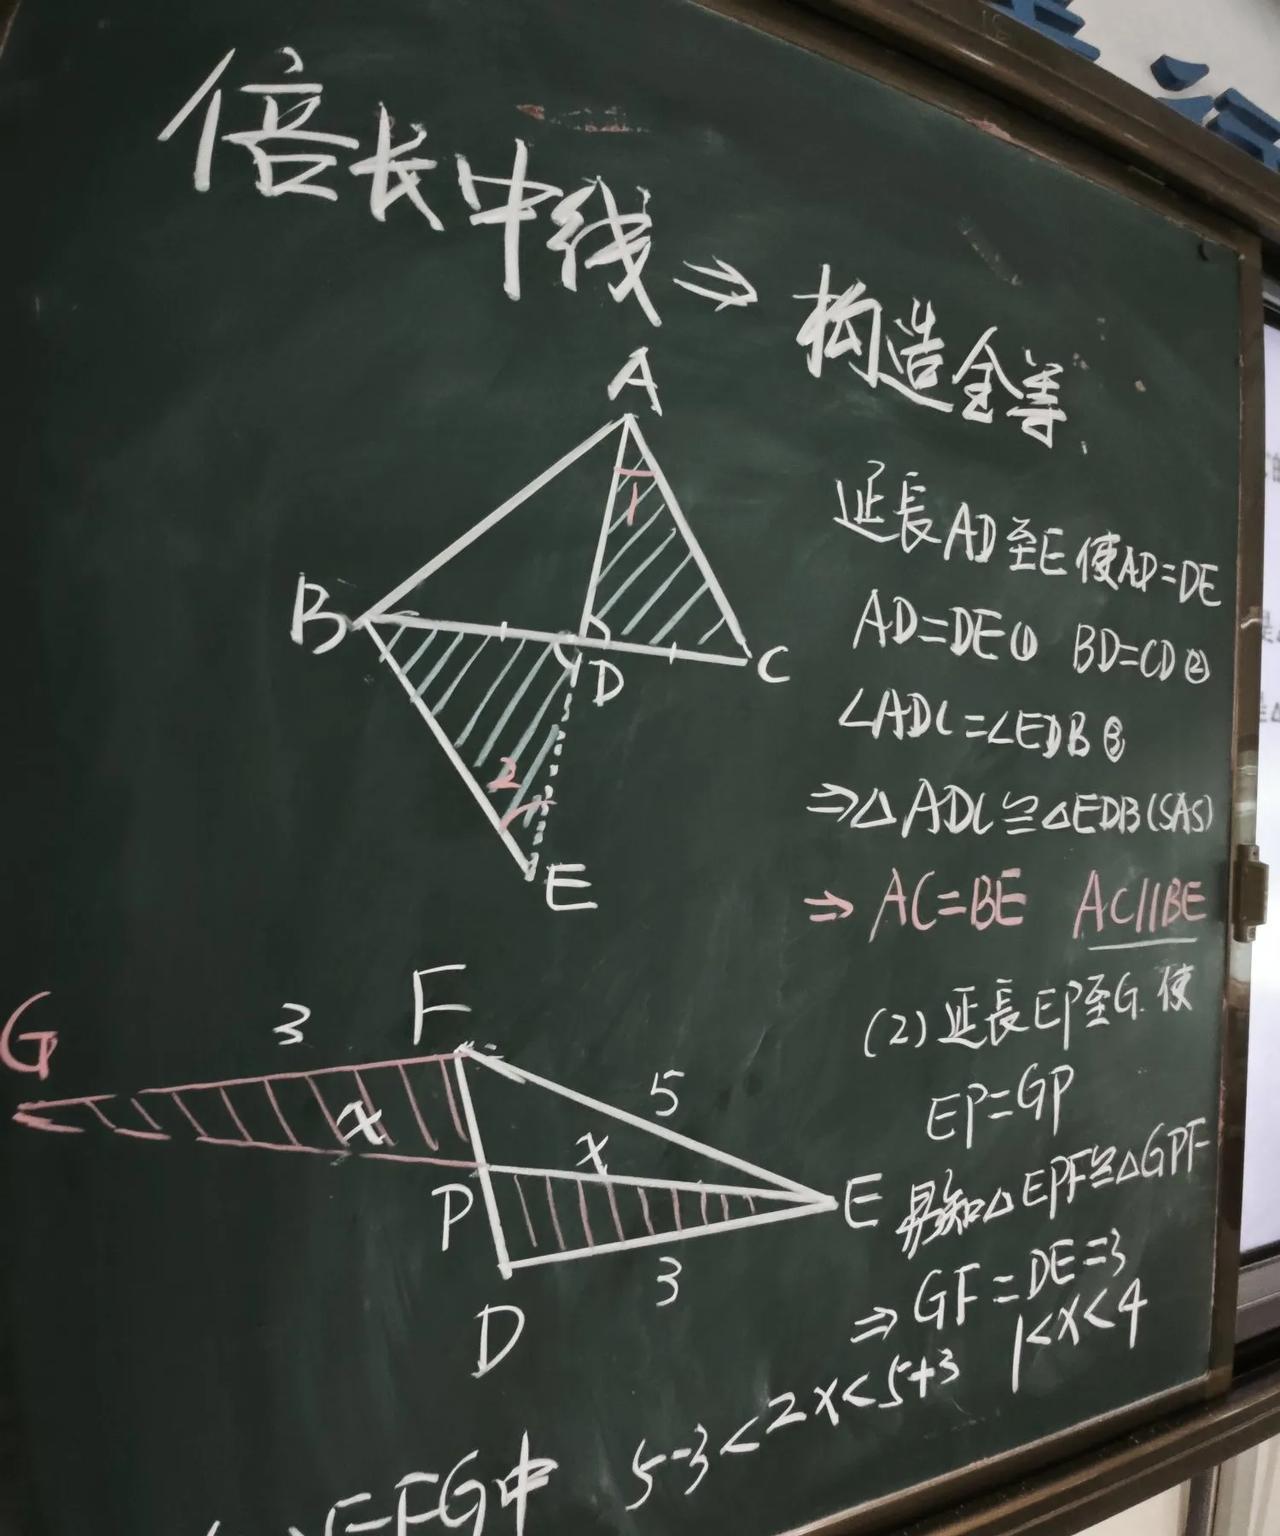 倍长中线
⇒ 构造全等
A
1
B
D
C
2
E
延長AD至E使AD=DE
AD=DE① BD=CD②
∠ADC=∠EDB③
⇒△ADC≌△EDB(SAS)
⇒ AC=BE AC//BE
G
3
F
x
5
x
P
E
3
D
(2)延長EP至G.使
EP=GP
易知△EPF≌△GPF
⇒GF=DE=3
5-3<2x<5+3 1<x<4
EFG中